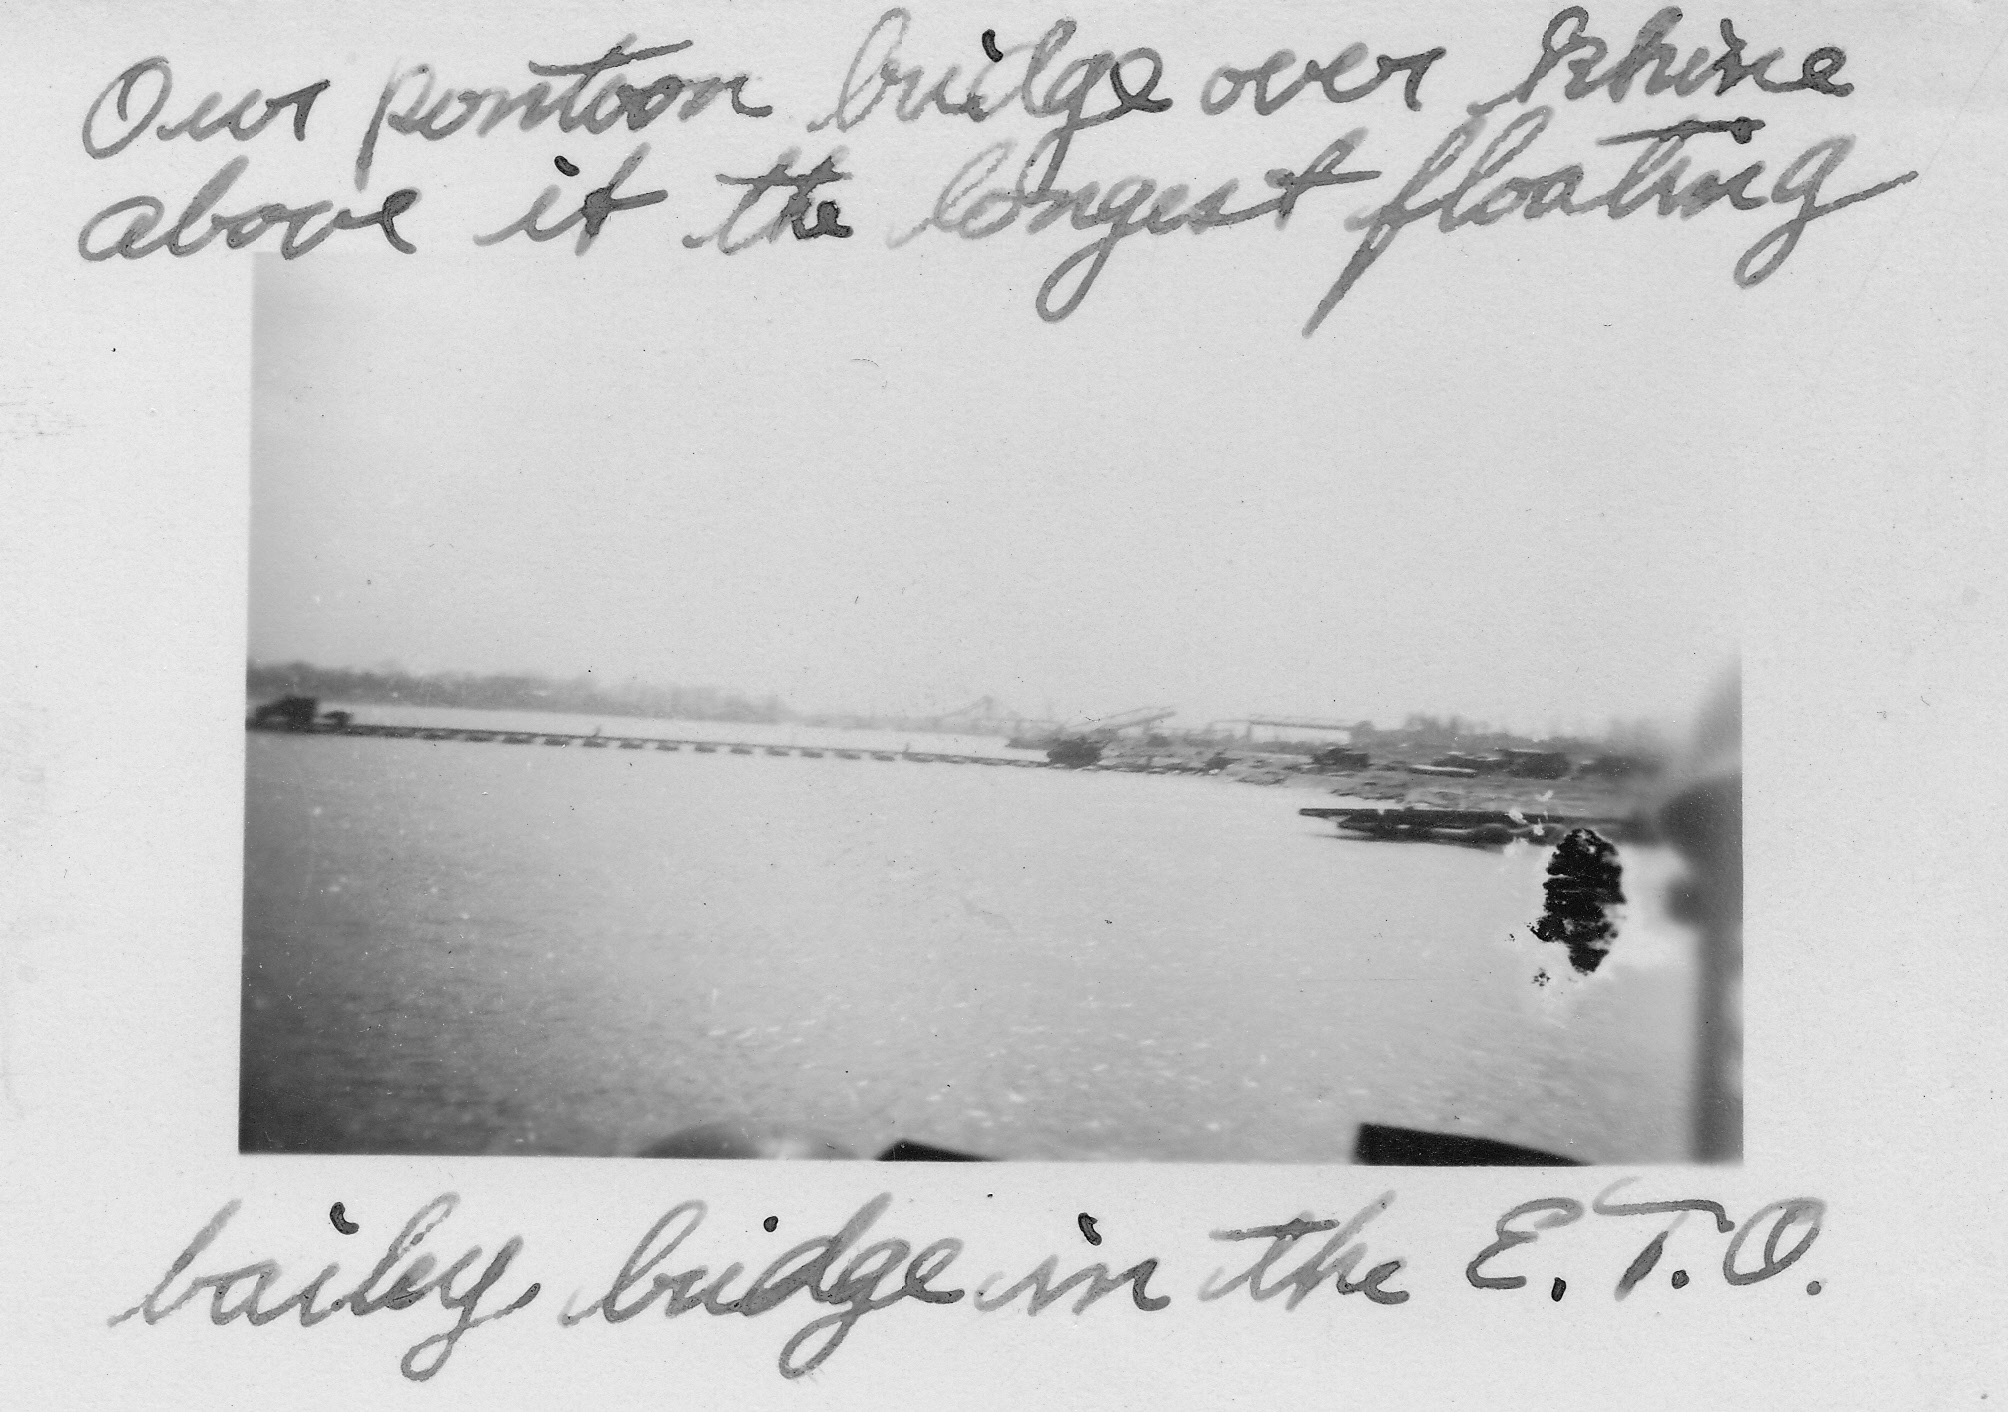 Our pontoon bridge over Rhine
above it the longest floating
bailey bridge in the E.T.O.